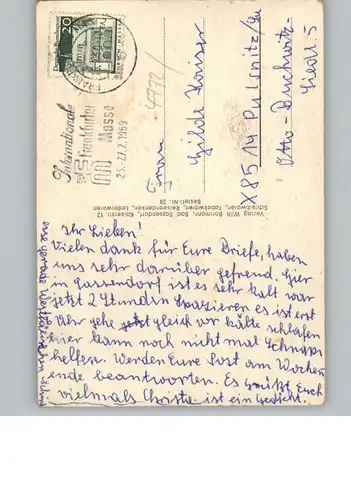 20
Internationale
Frankfurter
Messe
23.-27.2.1969
4772/
Frau
Gilde Kaiser
X 8514 Pulsnitz/Sa
Otto-Buchwitz-
Siedl. 5
Verlag Willi Borrmann, Bad Sassendorf, Kaiserstr. 12
Schreibwaren, Tabakwaren, Reiseandenken, Lederwaren
Bestell-Nr. 28
Ihr Lieben!
Vielen dank für Eure Briefe, haben
uns sehr darüber gefreud. Hier
in Sassendorf ist es sehr kalt war
jetzt 2 Stunden Spazieren es ist erst
Uhr gehe jetzt gleich vor kälte schlafen
hier kann noch nicht mal Schnaps
helfen. Werden Eure Post am Wochen
ende beantworten. Es grüßt Euch
vielmals Christa ist ein Gedicht.
eine gerade Westfälischen